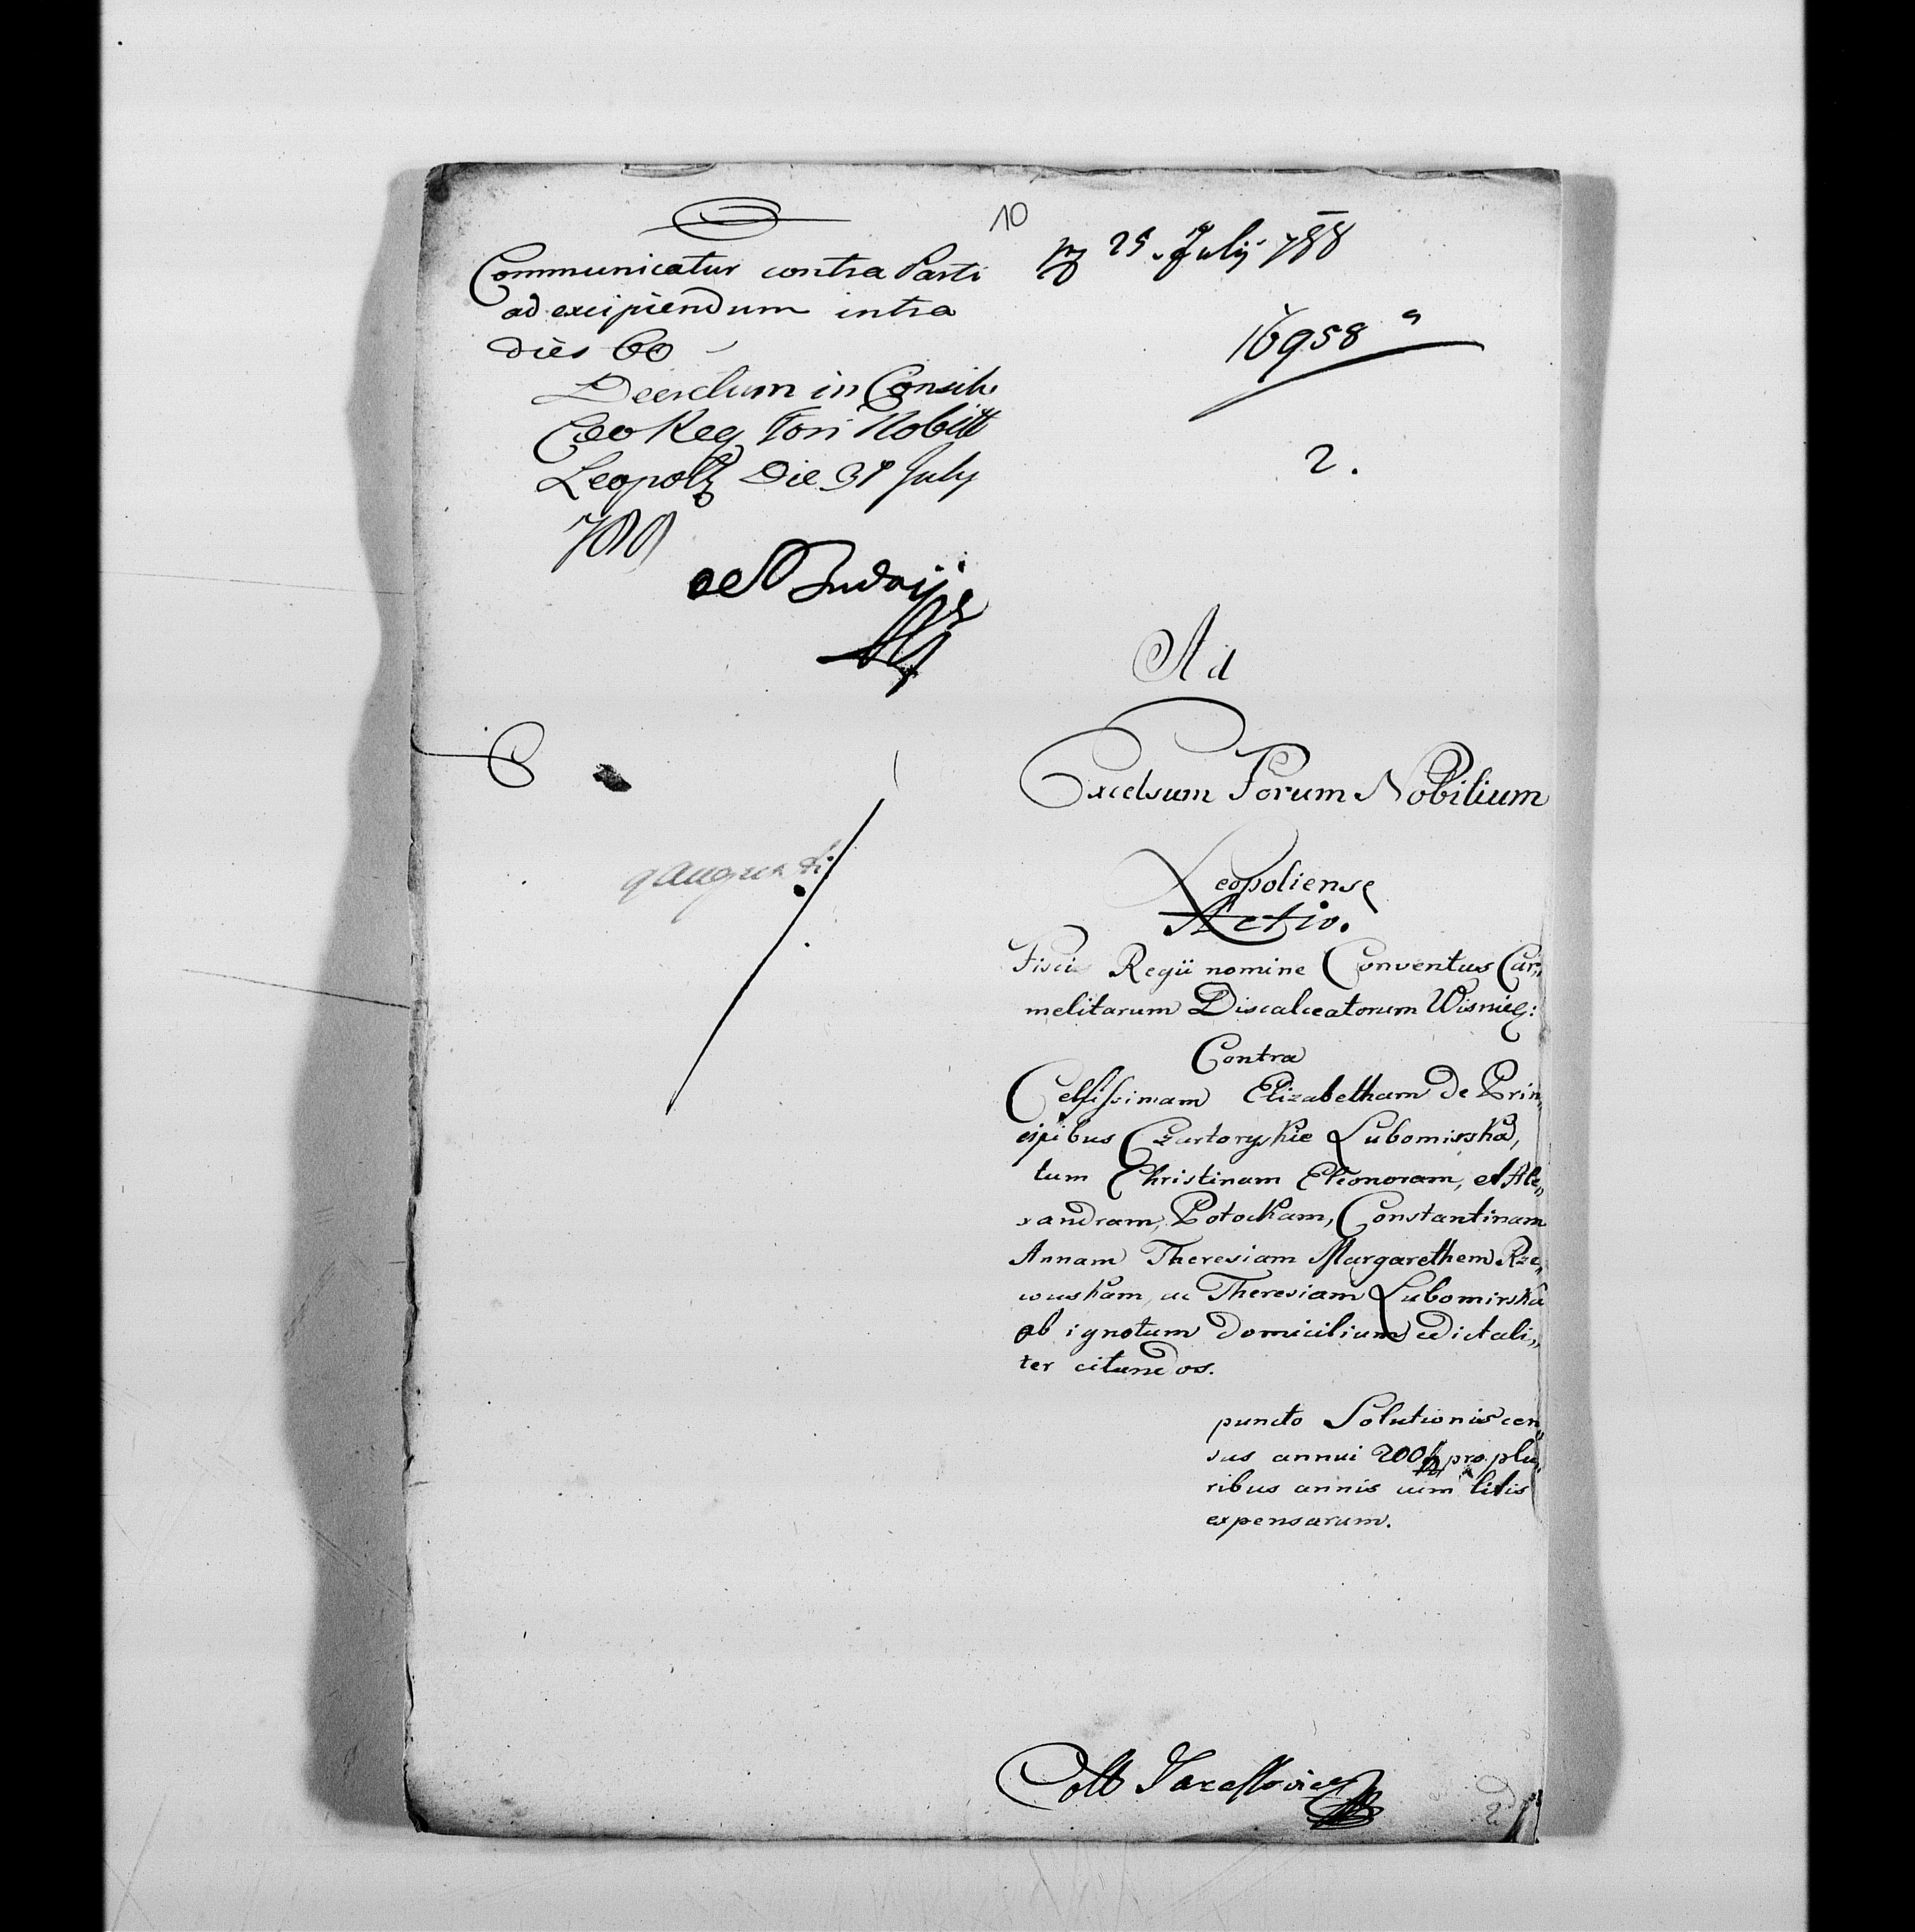 10
Communicatur contra Parti
ad excipiendum intra
dies 60
Decretum in Consilio
Caeo Reg Fori Nobill
Leopol Die 31 July
788
25 July 788
16958
2.
Ad
Excelsum Forum Nobilium
Leopoliense
Actio.
Fisci Regii nomine Conventus Car„
melitarum Discalceatorum Wisnic:
Contra
Celsissimam Elizabetham de Prin„
cipibus Czartoryskie Lubomirska,
tum Christinam Eleonoram, et Ale„
xandram, Potockam, Constantinam
Annam Theresiam Margarethem Rze„
wuskam, ac Theresiam Lubomirska
ob ignotum domicilium edictali„
ter citandos.
puncto Solutionis cen„
sus annui 200 pro plu„
ribus annis cum litis
expensarum.
2